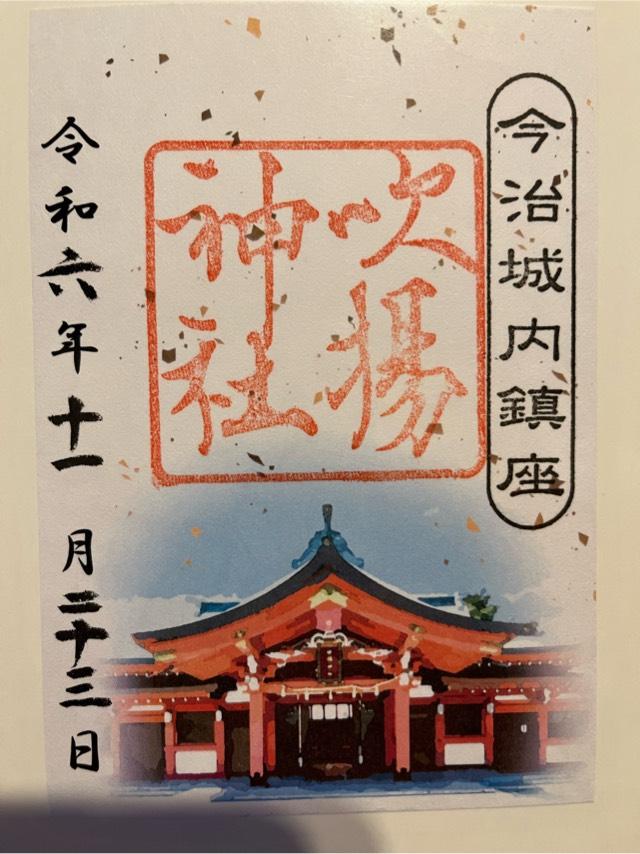 今治城内鎮座
吹揚
神社
令和六年十一月二十三日